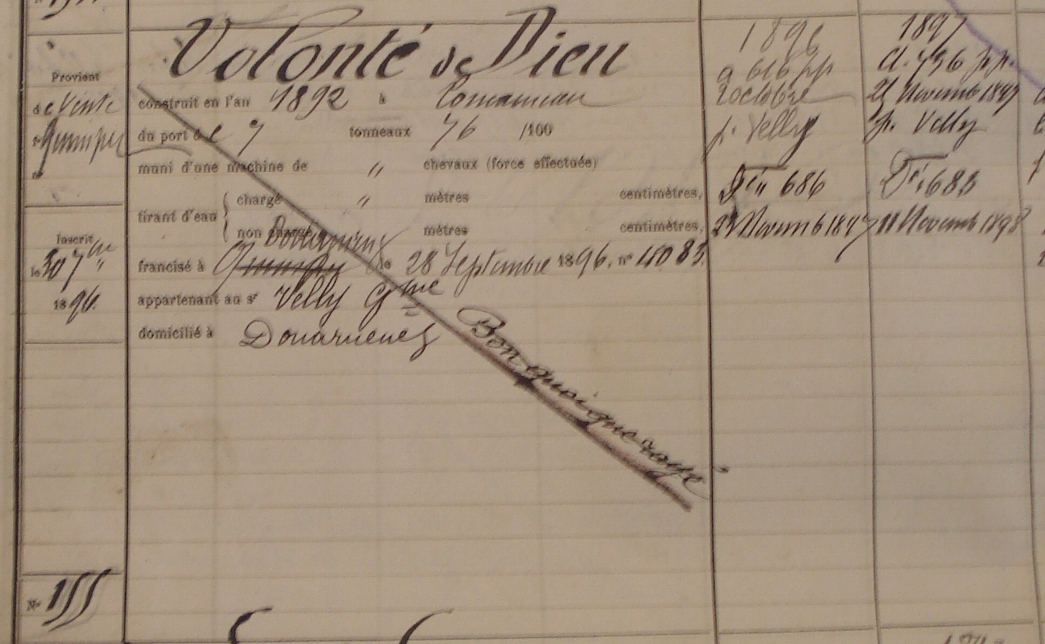 Volonté de Dieu
Provient
de Vente
Quimper
construit en l'an 1892 à Concarneau
du port de 7 tonneaux 76 /100
muni d'une machine de " chevaux (force effectuée)
tirant d'eau { chargé " mètres centimètres,
non chargé mètres centimètres,
Douarnenez
francisé à Quimper le 28 Septembre 1896. n° 4083.
appartenant au sr Velly Gme
domicilié à Douarnenez
Bon quoique rayé
Inscrit
le 307
1896.
N° 155
1896
a 616 pp
2 octobre
p. Velly
Dn 686
23 Novemb 1897
1897
a. 796 pp.
23 Novemb 1897
p. Velly
683
11 Novemb 1898